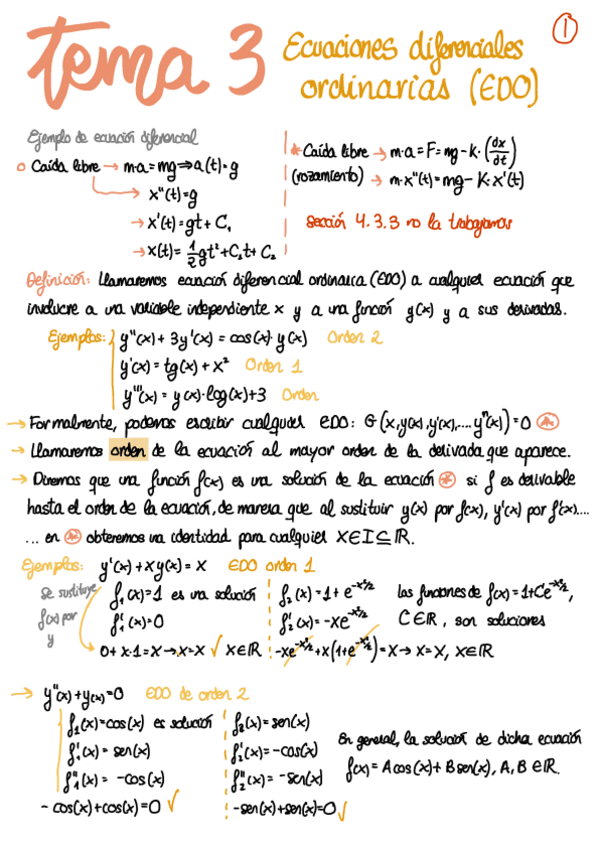 tema 3 Ecuaciones diferenciales ordinarias (EDO) ①
Ejemplo de ecuación diferencial
Caída libre → m·a=mg⇒a(t)=g
x''(t)=g
→ x'(t)=gt+C₁
→ x(t)=1/2gt²+C₁t+C₂
* Caída libre → m·a=F=mg-K·(dx/dt)
(rozamiento) → m·x''(t)=mg-K·x'(t)
Sección 4.3.3 no la trabajamos
Definición: Llamaremos ecuación diferencial ordinaria (EDO) a cualquier ecuación que
involucre a una variable independiente x y a una función y(x) y a sus derivadas.
Ejemplos: y''(x)+3y'(x)=cos(x)·y(x) Orden 2
y'(x)=tg(x)+x² Orden 1
y'''(x)=y(x)·log(x)+3 Orden
→ Formalmente, podemos escribir cualquier EDO: G(x,y(x),y'(x),...,yⁿ(x))=0 *
→ Llamaremos orden de la ecuación al mayor orden de la derivada que aparece.
→ Diremos que una función f(x) es una solución de la ecuación * si f es derivable
hasta el orden de la ecuación, de manera que al sustituir y(x) por f(x), y'(x) por f'(x)....
... en * obtenemos una identidad para cualquier x∈I⊆ℝ.
Ejemplos: y'(x)+xy(x)=x EDO orden 1
Se sustituye
f(x) por
y
f₁(x)=1 es una solución
f₁'(x)=0
0+x·1=x→x=x ✓ x∈ℝ
f₂(x)=1+e^(-x²/2)
f₂'(x)=-xe^(-x²/2)
-xe^(-x²/2)+x(1+e^(-x²/2))=x→x=x, x∈ℝ
las funciones de f(x)=1+Ce^(-x²/2),
C∈ℝ, son soluciones
→ y''(x)+y(x)=0 EDO de orden 2
f₁(x)=cos(x) es solución
f₁'(x)=sen(x)
f₁''(x)=-cos(x)
-cos(x)+cos(x)=0 ✓
f₂(x)=sen(x)
f₂'(x)=-cos(x)
f₂''(x)=-sen(x)
-sen(x)+sen(x)=0 ✓
En general, la solución de dicha ecuación
f(x)=Acos(x)+Bsen(x), A,B∈ℝ.